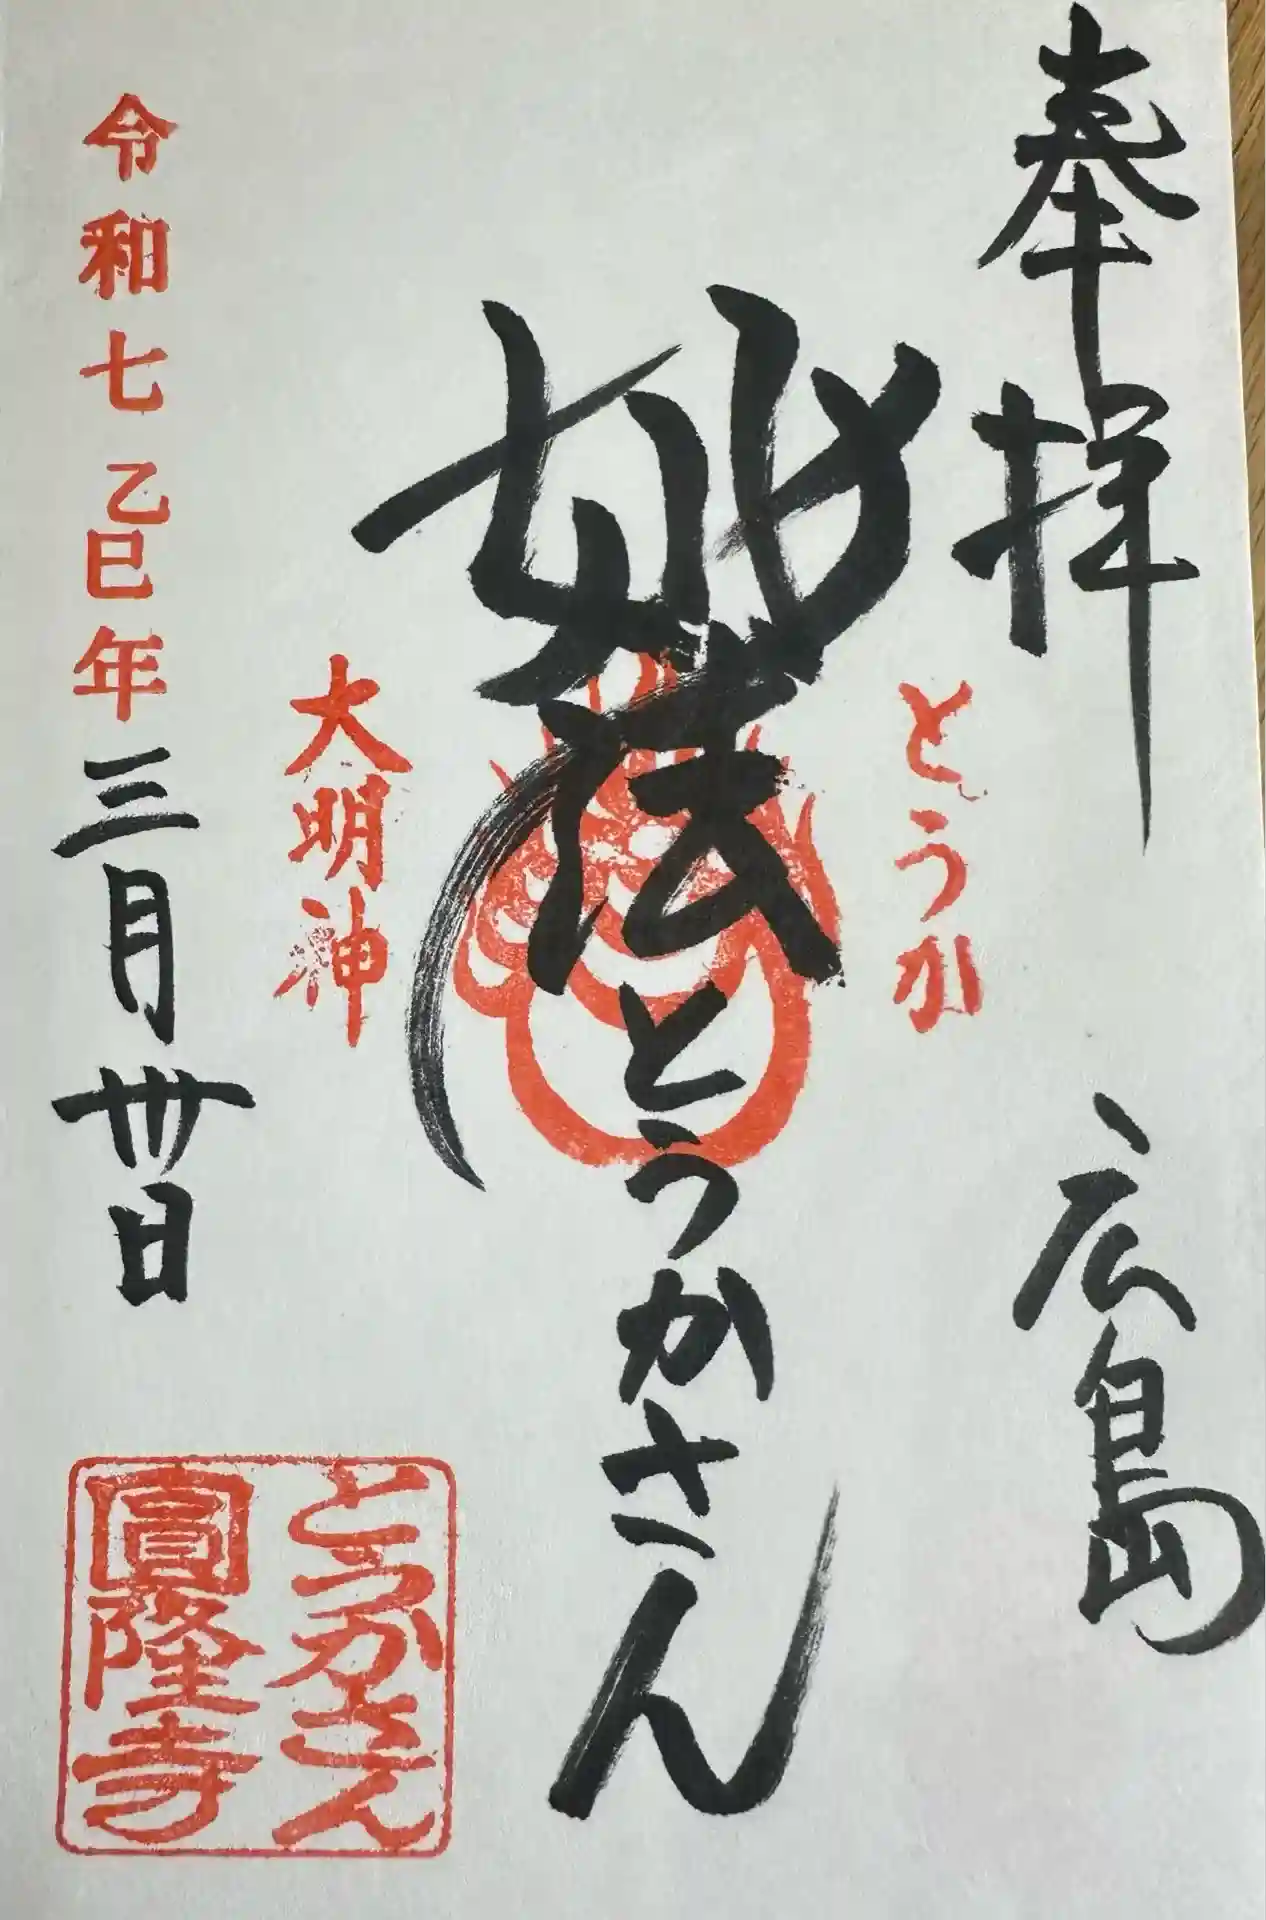 奉拝
広島
とうか
妙法
とうかさん
大明神
令和七乙巳年三月卅日
とうかさん
圓隆寺